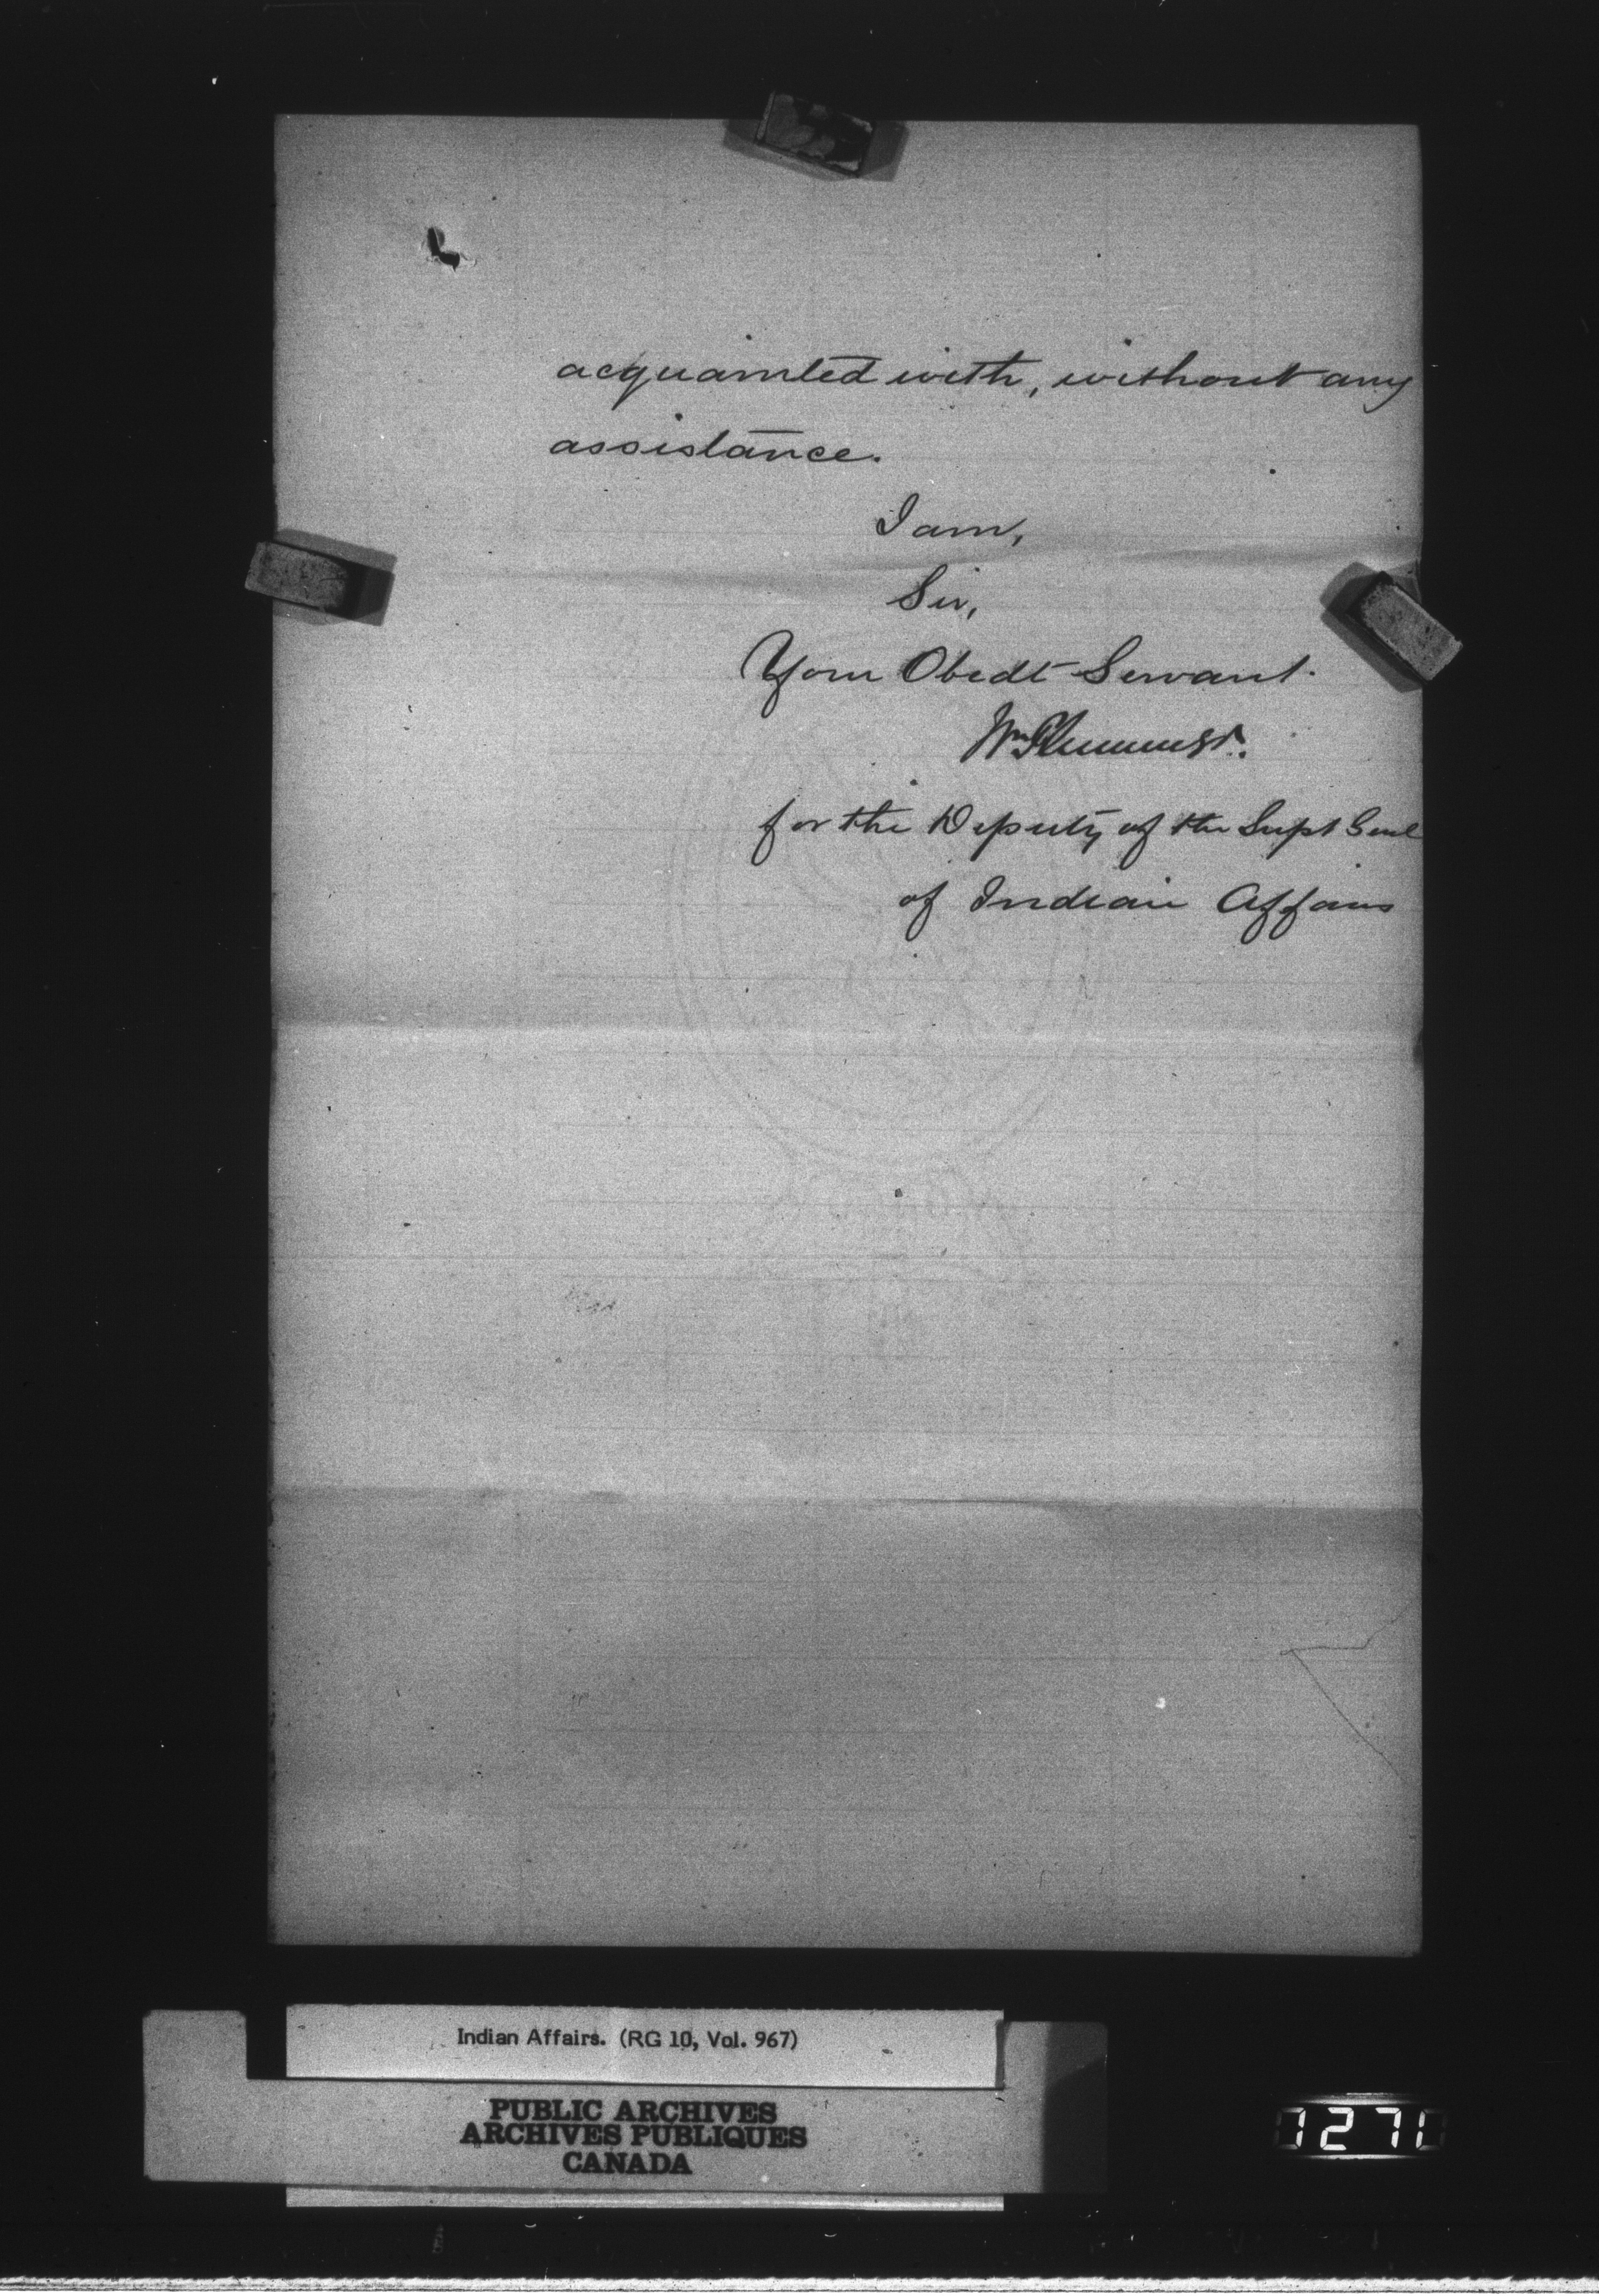 acquainted with, without any
assistance.
I am,
Sir,
Your Obedt Servant.
Wm Plummer.
for the Deputy of the Supt Genl
of Indian Affairs
Indian Affairs. (RG 10, Vol. 967)
PUBLIC ARCHIVES
ARCHIVES PUBLIQUES
CANADA
1271